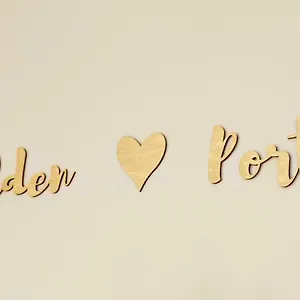 lden Port